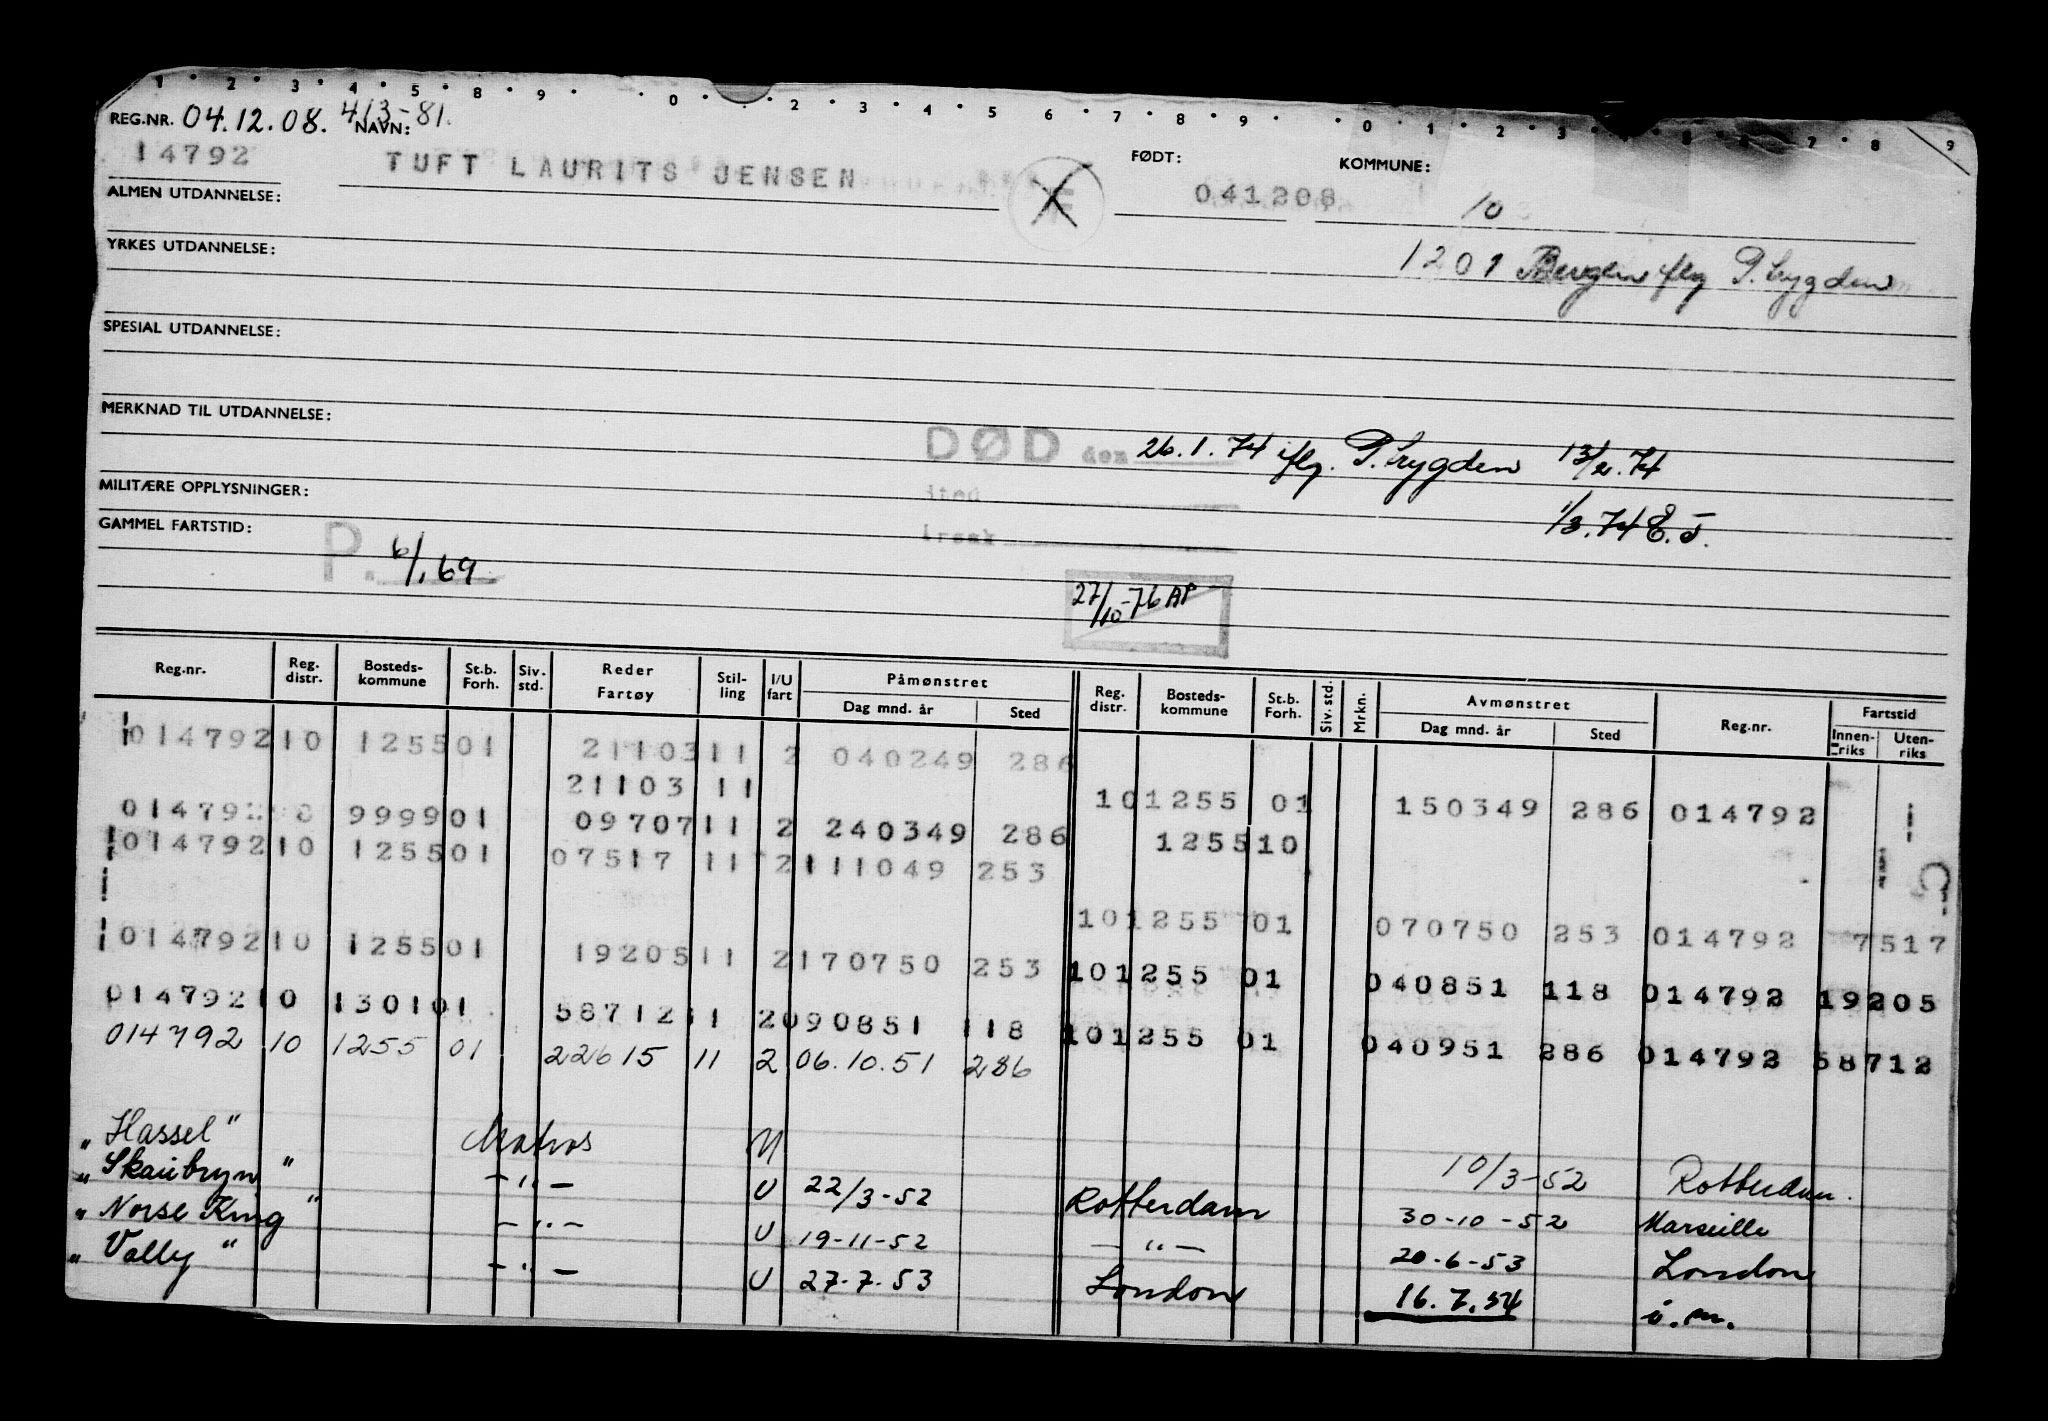 1 2 3 4 5 8 9 0 2 3 4 5 6 7 8 9 0 1 2 3 7 8 9
REG.NR. 04.12.08. 413-81. NAVN: FØDT: KOMMUNE:
14792 TUFT LAURITS JENSEN 041208 10
ALMEN UTDANNELSE:
YRKES UTDANNELSE: 1201 Bergen iflg P. trygden
SPESIAL UTDANNELSE:
MERKNAD TIL UTDANNELSE:
DØD den 26.1.74 iflg. P. trygden 13/2.74
MILITÆRE OPPLYSNINGER: sted
1/3.74 E.J.
GAMMEL FARTSTID: årsak
P. 6/1.69
27/10-76 AP
Reg.nr. Reg. distr. Bosteds-kommune St.b. Forh. Siv. std. Reder Fartøy Stil-ling I/U fart Påmønstret Dag mnd. år Sted Reg. distr. Bosteds-kommune St.b. Forh. Siv. std. Mrkn. Avmønstret Dag mnd. år Sted Reg.nr. Fartstid Innen-riks Uten-riks
014792 10 1255 01 21103 11 2 040249 286
21103 11 10 1255 01 150349 286 014792
014792 0 9999 01 09707 11 2 240349 286 1255 10
014792 10 1255 01 07517 11 2 111049 253
10 1255 01 070750 253 014792 7517
014792 10 1255 01 19205 11 2 170750 253 10 1255 01 040851 118 014792 19205
014792 10 1301 01 58712 11 2 090851 118 10 1255 01 040951 286 014792 58712
014792 10 1255 01 22615 11 2 06.10.51 286
"Hassel" Matros U 10/3-52 Rotterdam.
"Skaubryn" -"- U 22/3-52 Rotterdam 30-10-52 Marseille
"Norse King" -"- U 19-11-52 -"- 20-6-53 London
"Vally" -"- U 27-7-53 London 16.7.54 i.m.